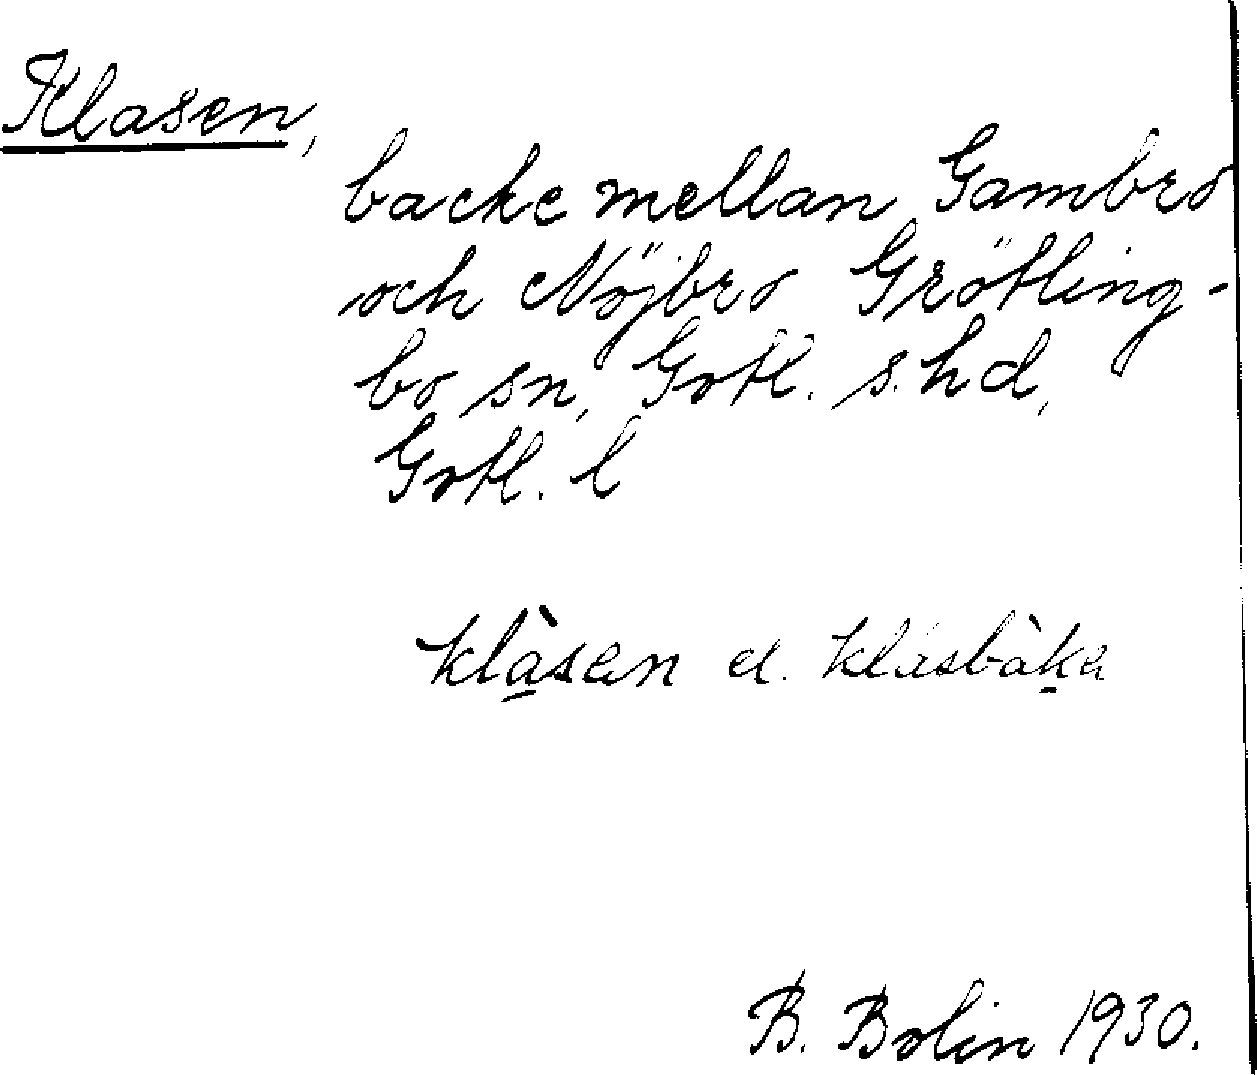 Klasen,
backe mellan Gambro
och Nöjbro Grötling-
bo sn, Gotl. s. hd,
Gotl. l
klà̱sen el. klásbàḵa
B. Bolin 1930.